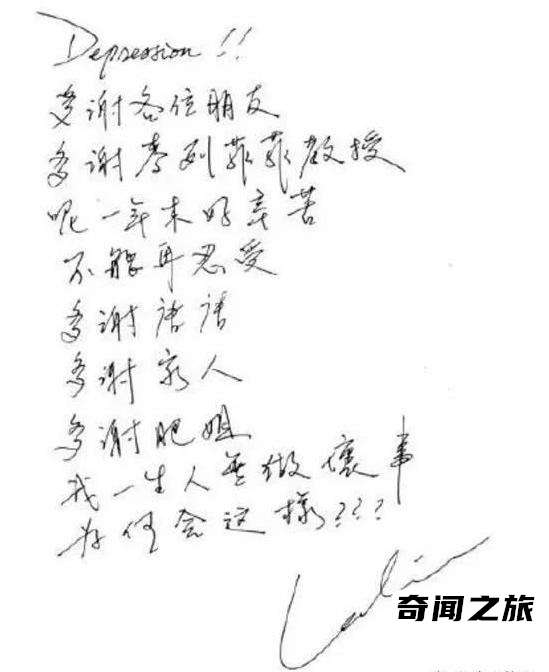 Depression !!
多谢各位朋友
多谢麦列菲菲教授
呢一年来好辛苦
不能再忍受
多谢唐唐
多谢家人
多谢肥姐
我一生人無做壞事
为何会这樣???
奇闻之旅